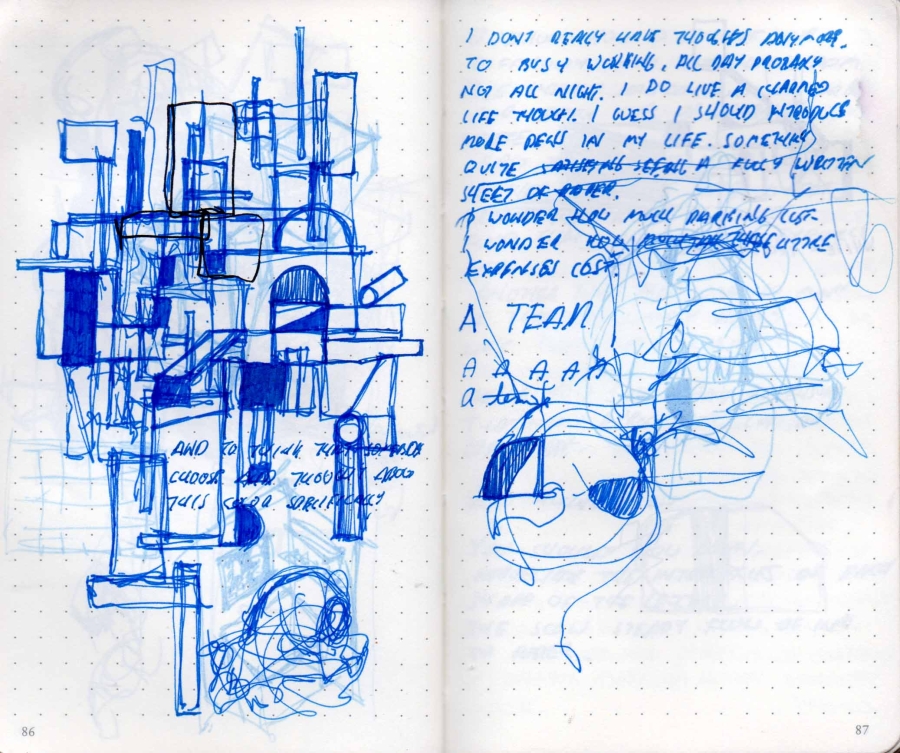 AND TO THINK THAT SOMEBODY
CHOOSE AND THOUGHT ABOUT
THIS COLOR SPECIFICALLY
86
I DONT REALLY HAVE THOUGHTS ANYMORE.
TO BUSY WORKING. ALL DAY PROBABLY
NOT ALL NIGHT. I DO LIVE A CHARMED
LIFE THOUGH. I GUESS I SHOULD INTRODUCE
MORE IN MY LIFE. SOMEWHAT
QUITE A FULLY WRITTEN
SHEET OF PAPER.
I WONDER HOW MUCH PARKING COST
I WONDER HOW MUCH FUTURE
EXPENSES COST.
A TEAM
A A A A A
a team
87